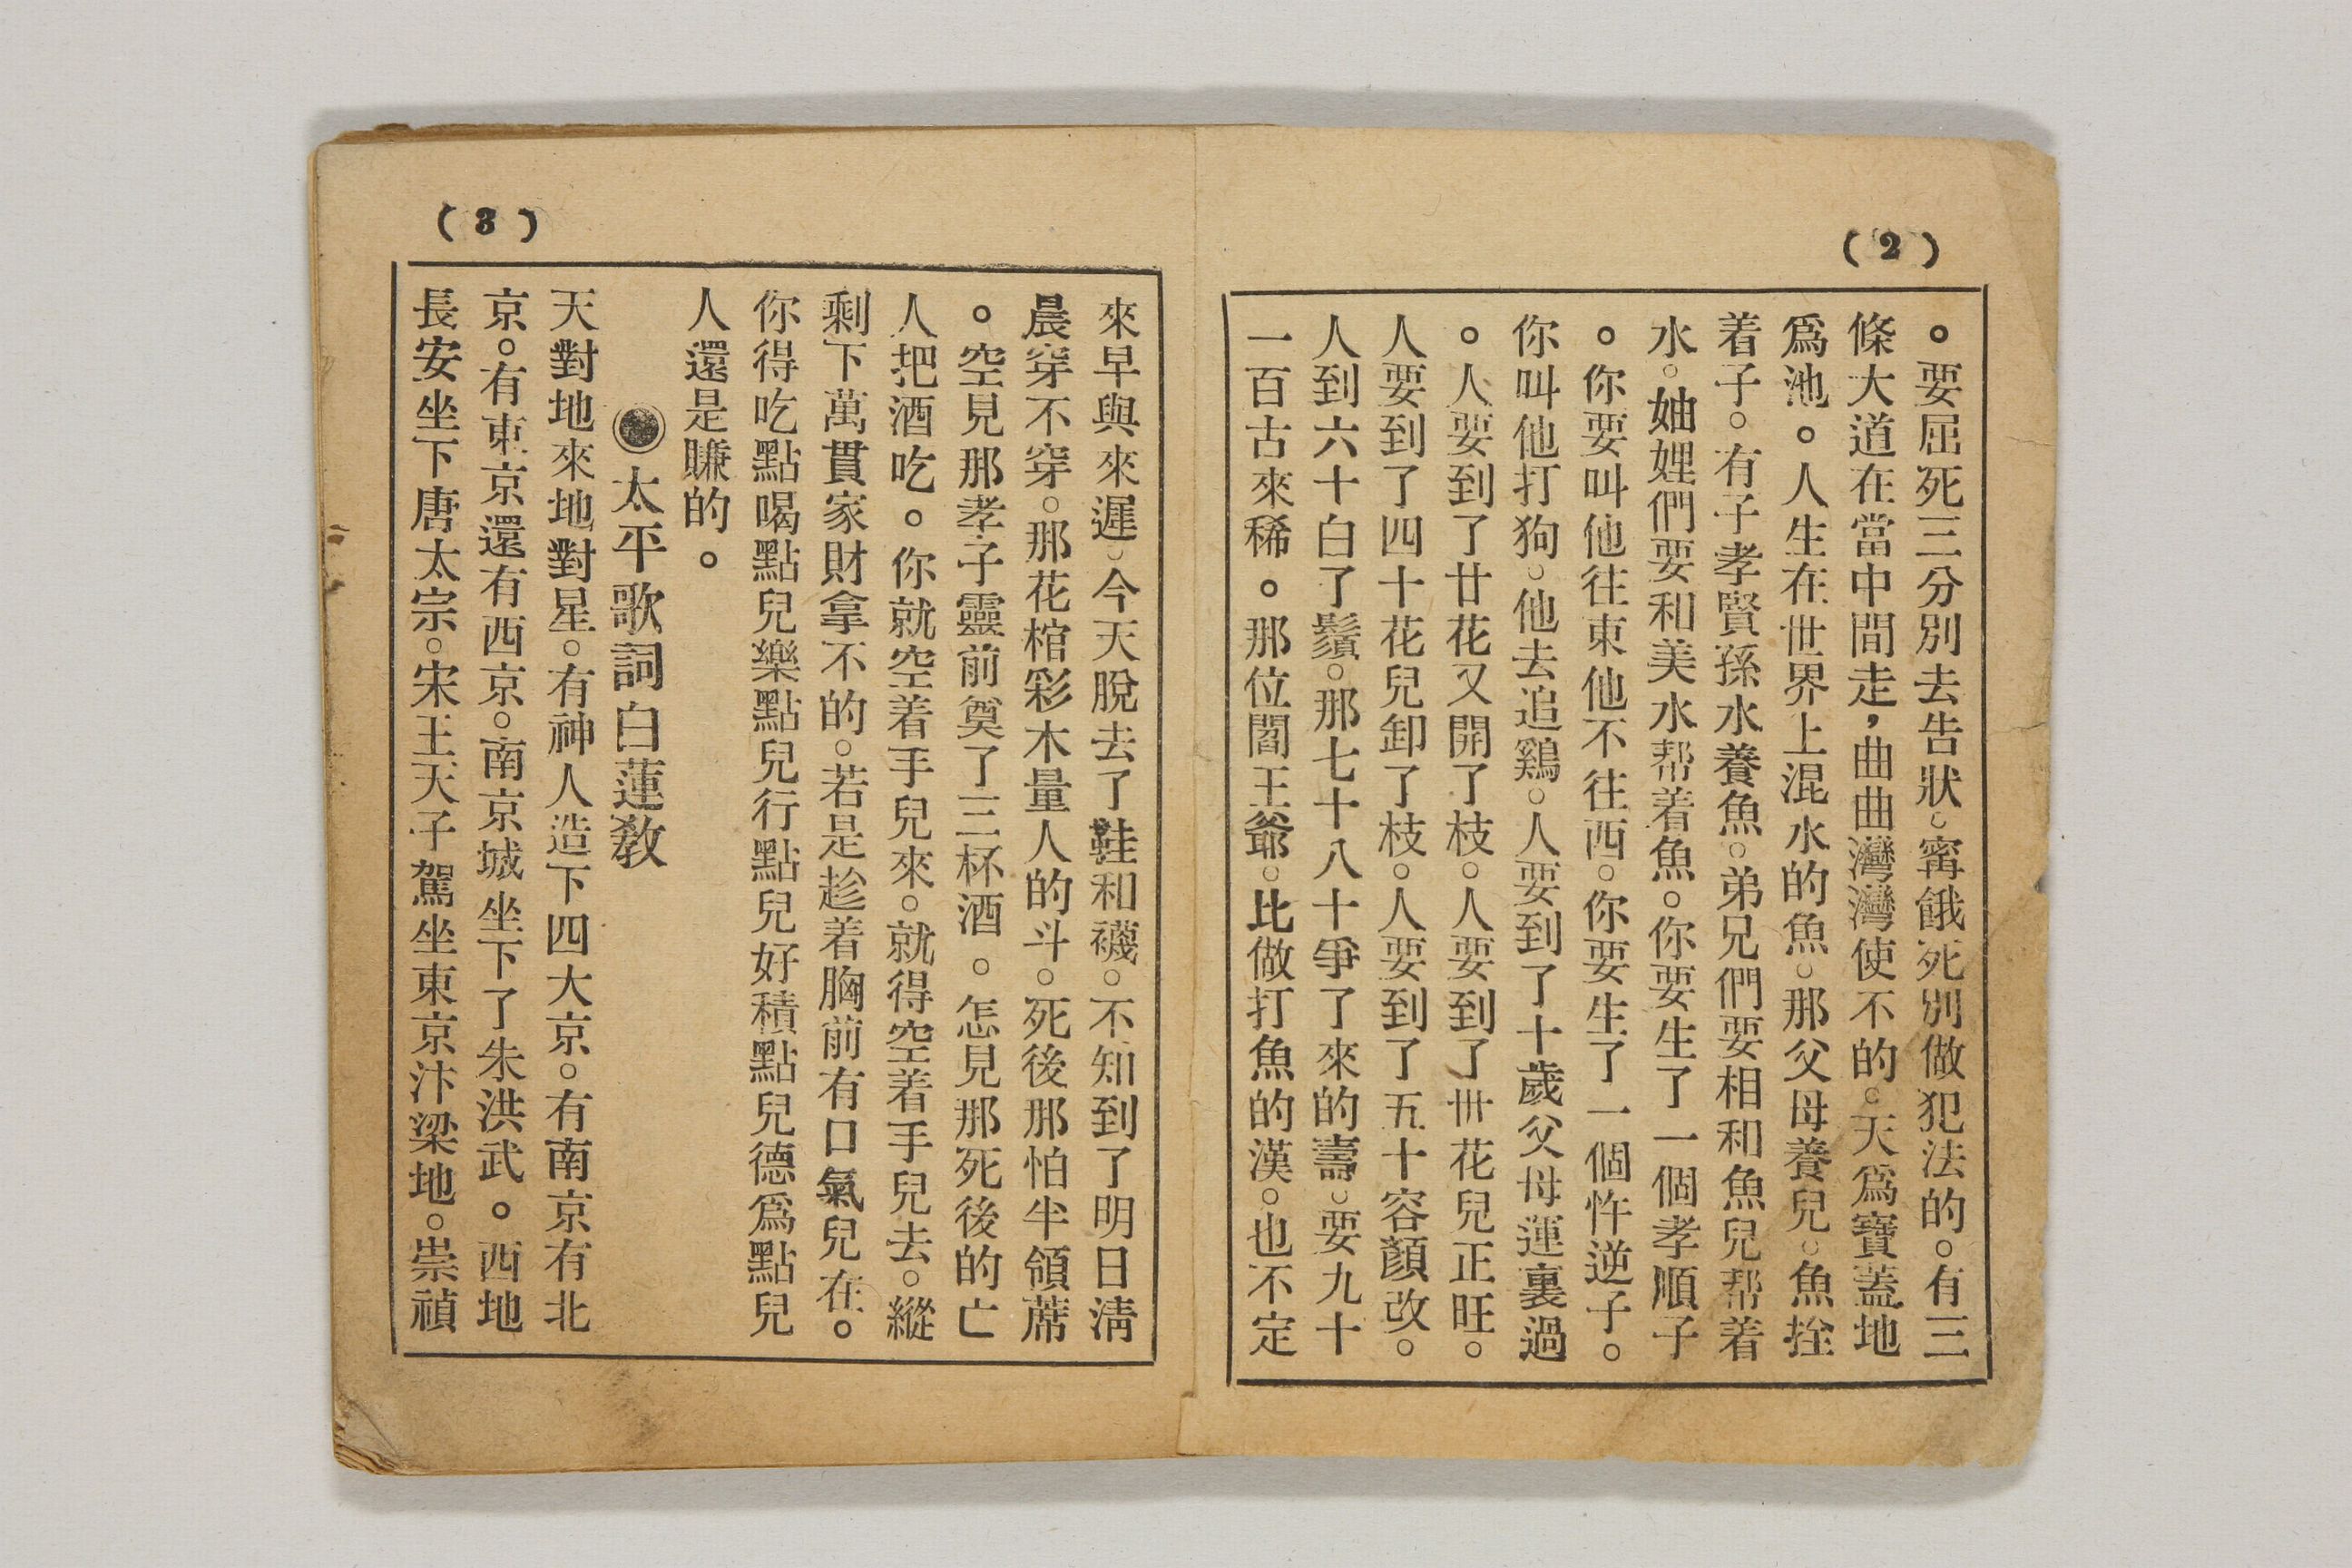 (2)
。要屈死三分別去告狀。寗餓死別做犯法的。有三
條大道在當中間走，曲曲灣灣使不的。天爲寶蓋地
爲池。人生在世界上混水的魚。那父母養兒。魚拴
着子。有子孝賢孫水養魚。弟兄們要相和魚兒帮着
水。妯娌們要和美水帮着魚。你要生了一個孝順子
。你要叫他往東他不往西。你要生了一個忤逆子。
你叫他打狗。他去追鷄。人要到了十歲父母運裏過
。人要到了廿花又開了枝。人要到了卅花兒正旺。
人要到了四十花兒卸了枝。人要到了五十容顏改。
人到六十白了鬚。那七十八十爭了來的壽。要九十
一百古來稀。那位閻王爺。比做打魚的漢。也不定
(3)
來早與來遲。今天脫去了鞋和襪。不知到了明日淸
晨穿不穿。那花棺彩木量人的斗。死後那怕半領蓆
。空見那孝子靈前奠了三杯酒。怎見那死後的亡
人把酒吃。你就空着手兒來。就得空着手兒去。縱
剩下萬貫家財拿不的。若是趁着胸前有口氣兒在。
你得吃點喝點兒樂點兒行點兒好積點兒德爲點兒
人還是賺的。
◉太平歌詞白蓮敎
天對地來地對星。有神人造下四大京。有南京有北
京。有東京還有西京。南京城坐下了朱洪武。西地
長安坐下唐太宗。宋王天子駕坐東京汴梁地。崇禎